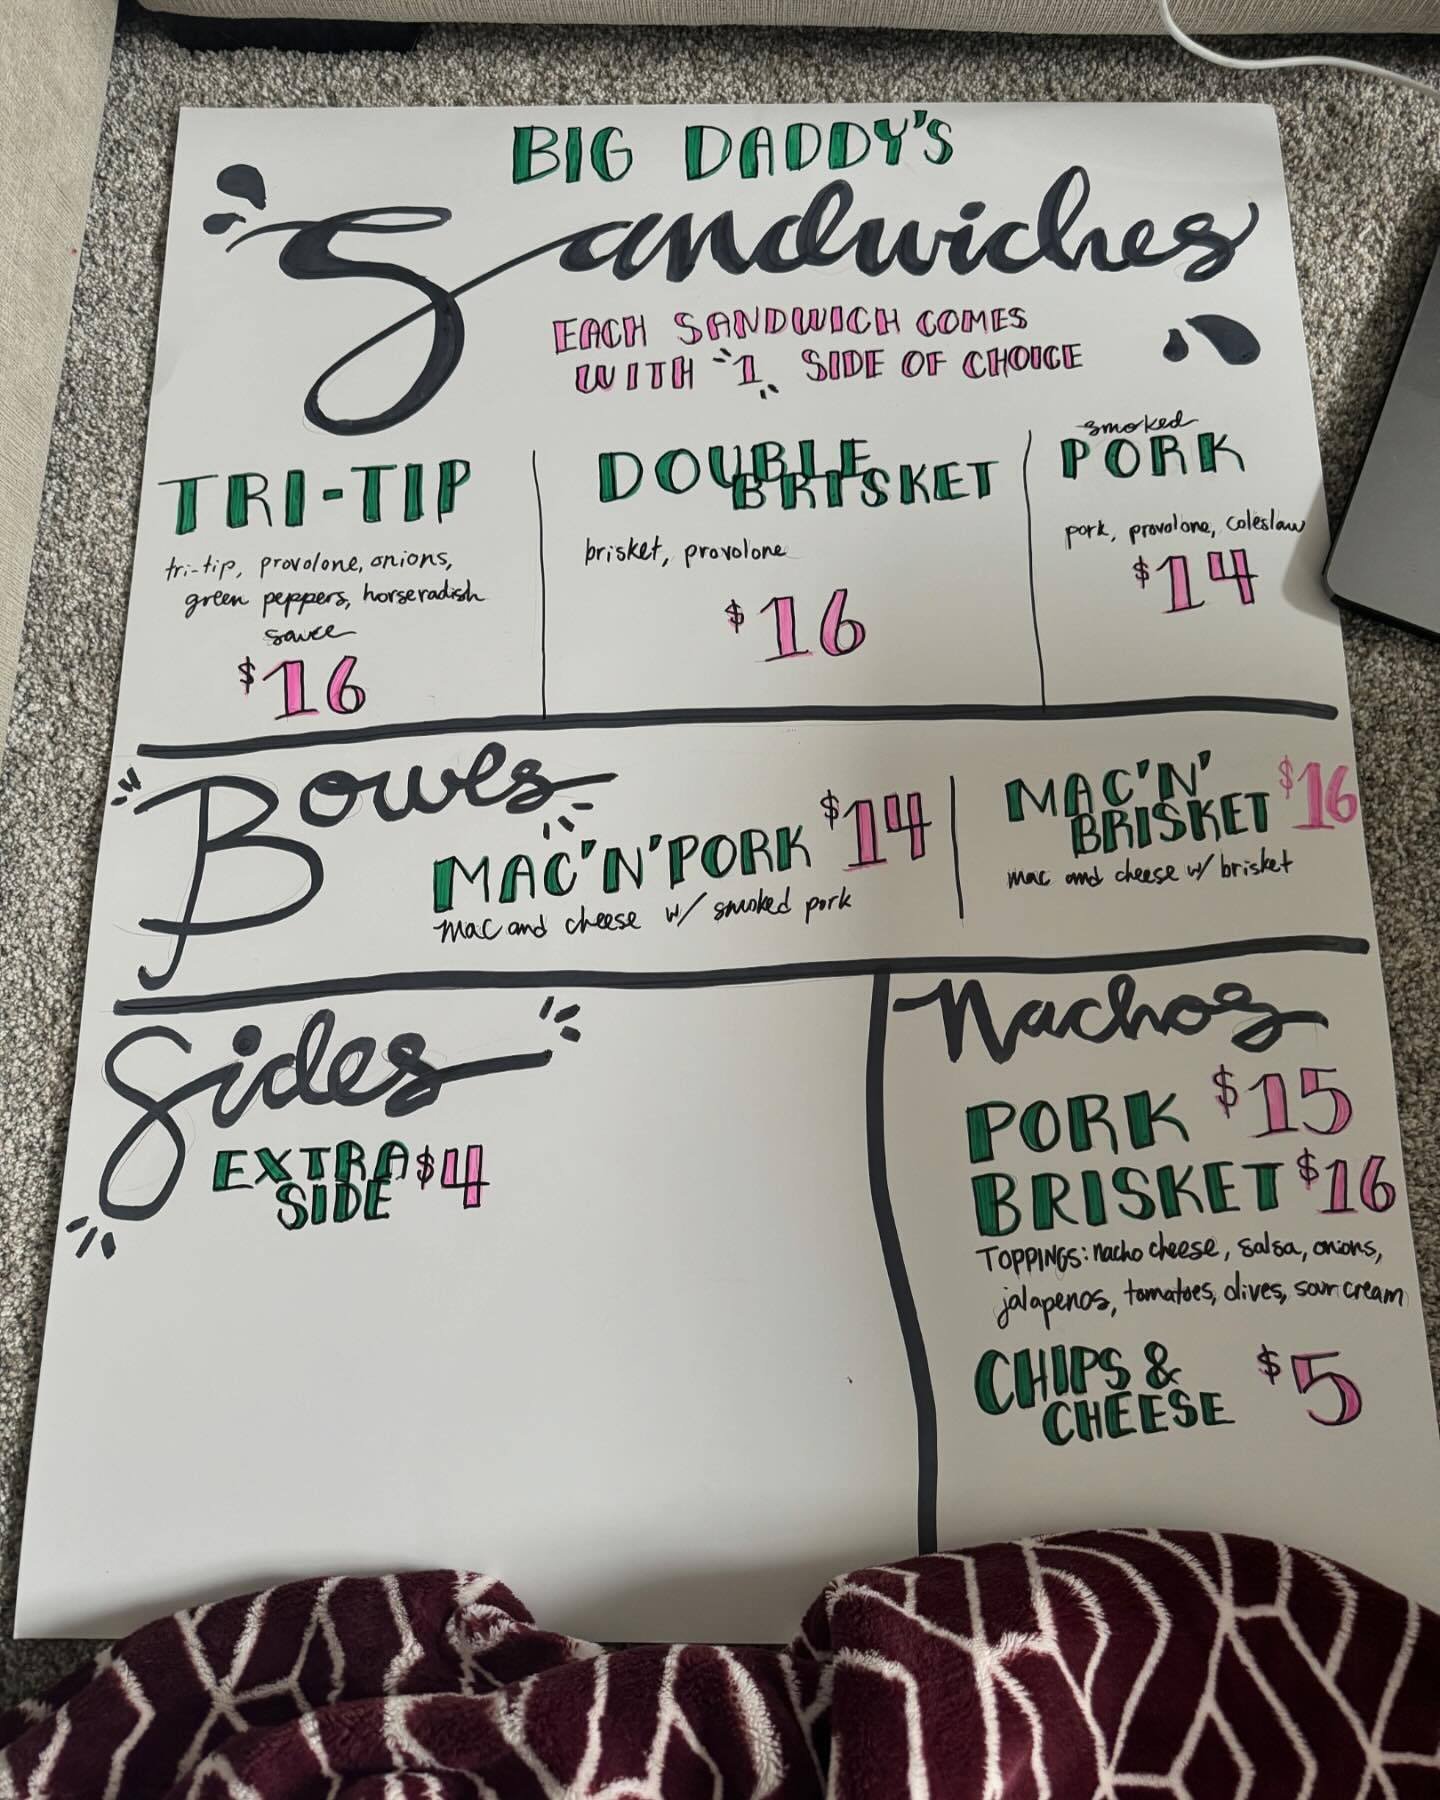 BIG DADDY'S
Sandwiches
EACH SANDWICH COMES
WITH 1 SIDE OF CHOICE
TRI-TIP
tri-tip, provolone, onions,
green peppers, horseradish
sauce
$16
DOUBLE
BRISKET
brisket, provolone
$16
smoked
PORK
pork, provolone, coleslaw
$14
Bowls
MAC'N'PORK $14
mac and cheese w/ smoked pork
MAC'N'
BRISKET $16
mac and cheese w/ brisket
Sides
EXTRA $4
SIDE
Nachos
PORK $15
BRISKET $16
TOPPINGS: nacho cheese, salsa, onions,
jalapenos, tomatoes, olives, sour cream
CHIPS & $5
CHEESE